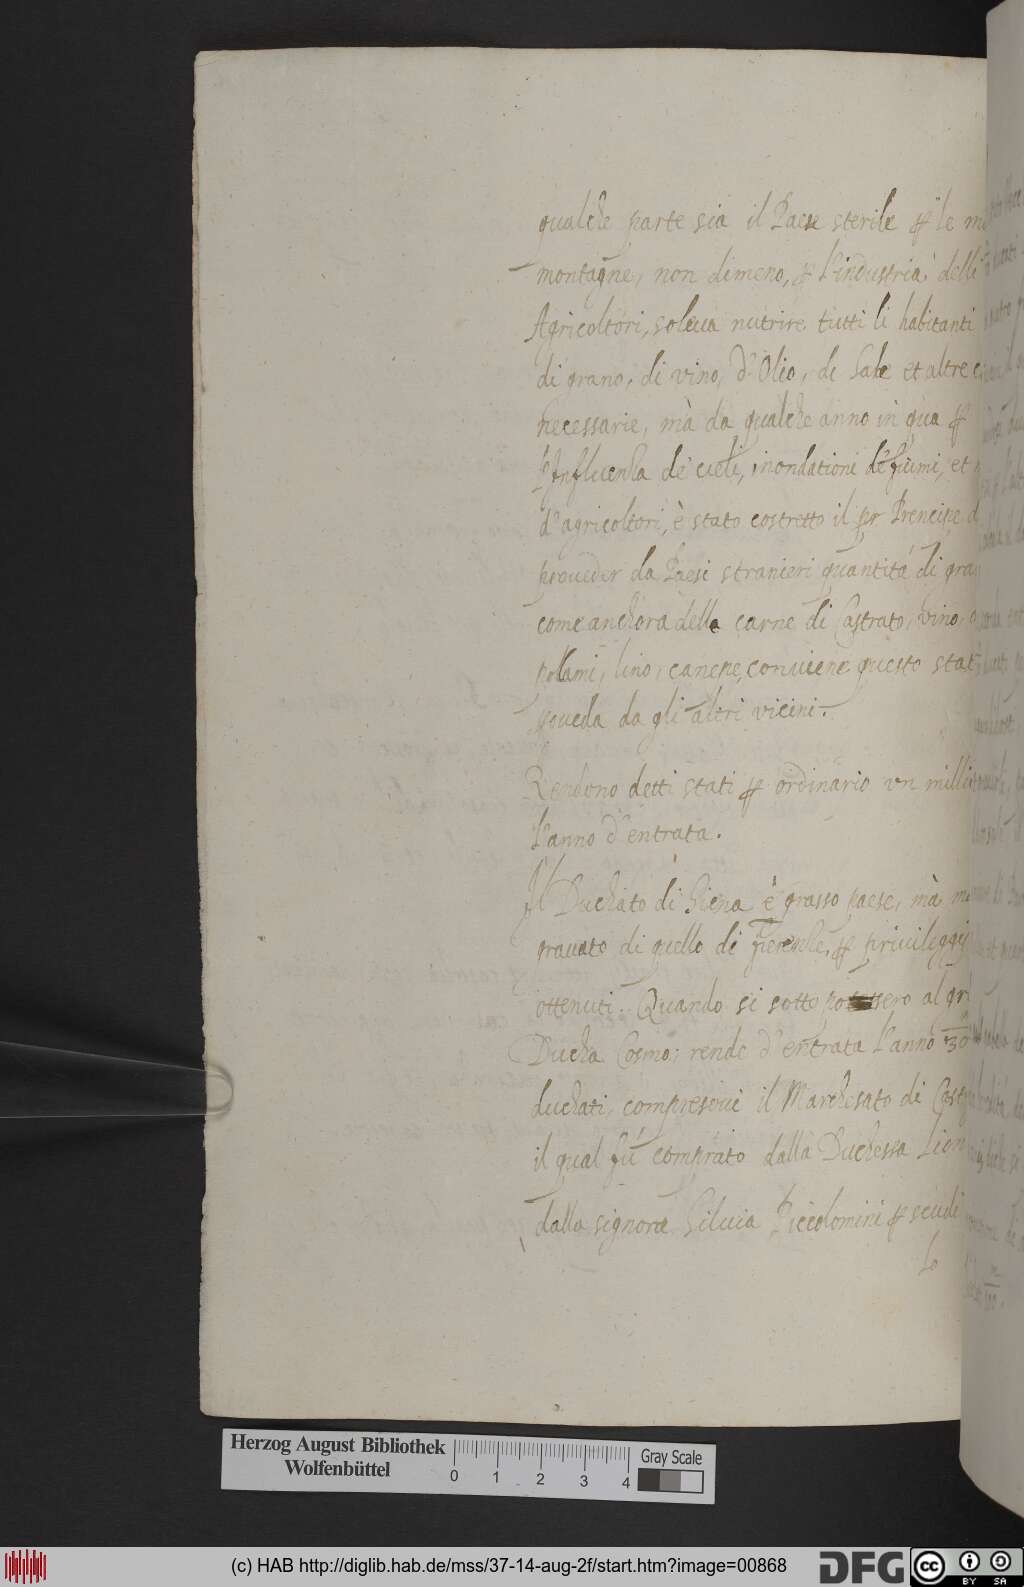 qualche parte sia il Paese sterile ꝑ le
montagne, non dimeno, ꝑ l'industria delli
Agricoltori, soleua nutrire tutti li habitanti
di grano, di vino, d'Olio, di Sale et altre
necessarie, mà da qualche anno in qua ꝑ
l'Influenza de' cieli, inondationi de' fiumi, et
d'agricoltori, è stato costretto il Sr Prencipe
proueder da Paesi stranieri quantità di
come anchora della carne di Castrato, vino,
pollami, lino, canepe, conuiene questo
proueda da gli altri vicini.
Rendono detti stati ꝑ ordinario vn
l'anno d'entrata.
Il Duchato di Siena è grasso paese, mà
grauato di quello di fierenze, ꝑ priuileggij
ottenuti. Quando si sotto al
Ducha Cosmo; rende d'entrata l'anno 30
duchati, compresoui il Marchesato di
il qual fù comprato dalla Duchessa
dalla signora Siluia Piccolomini ꝑ scudi
lo
Herzog August Bibliothek
Wolfenbüttel
0 1 2 3 4
Gray Scale
(c) HAB http://diglib.hab.de/mss/37-14-aug-2f/start.htm?image=00868
DFG
cc BY SA